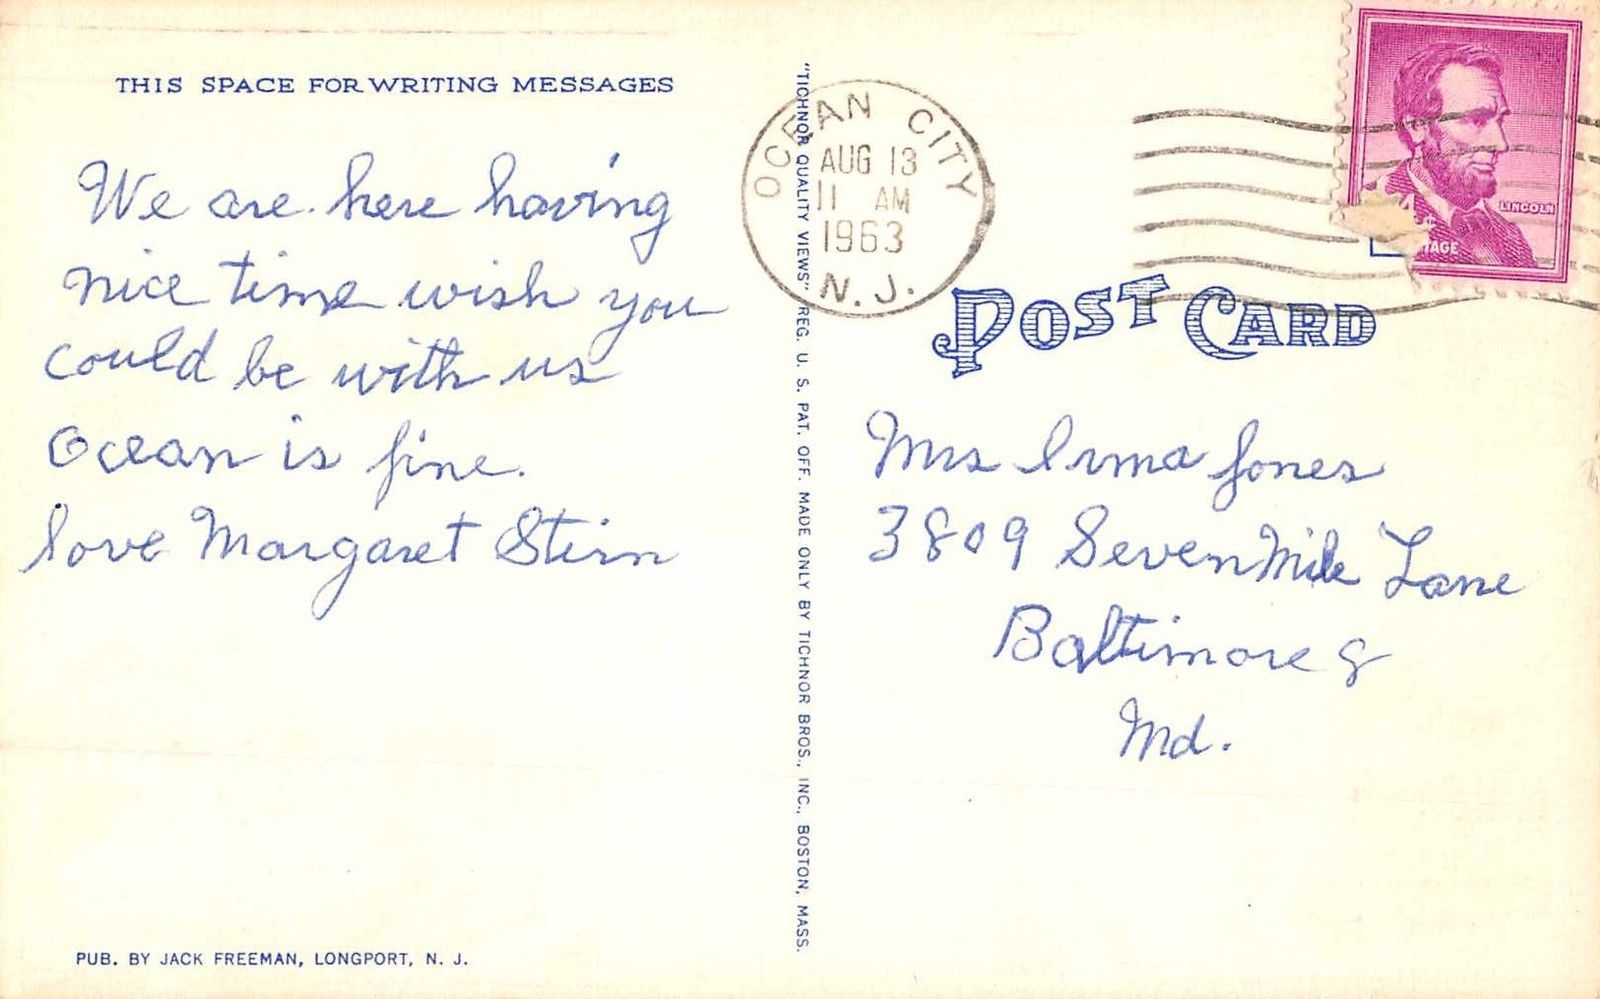 THIS SPACE FOR WRITING MESSAGES
We are here having
nice time wish you
could be with us
Ocean is fine.
love Margaret Stern
PUB. BY JACK FREEMAN, LONGPORT, N. J.
"TICHNOR QUALITY VIEWS" REG. U. S. PAT. OFF. MADE ONLY BY TICHNOR BROS., INC., BOSTON, MASS.
OCEAN CITY
AUG 13
11 AM
1963
N. J.
LINCOLN
POST CARD
Mrs Irma Jones
3809 Seven Mile Lane
Baltimore 8
Md.